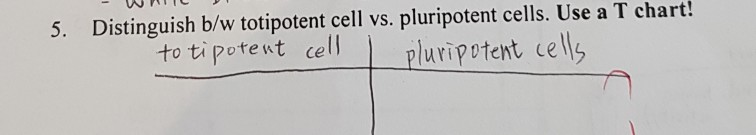 5. Distinguish b/w totipotent cell vs. pluripotent cells. Use a T chart!
totipotent cell pluripotent cells